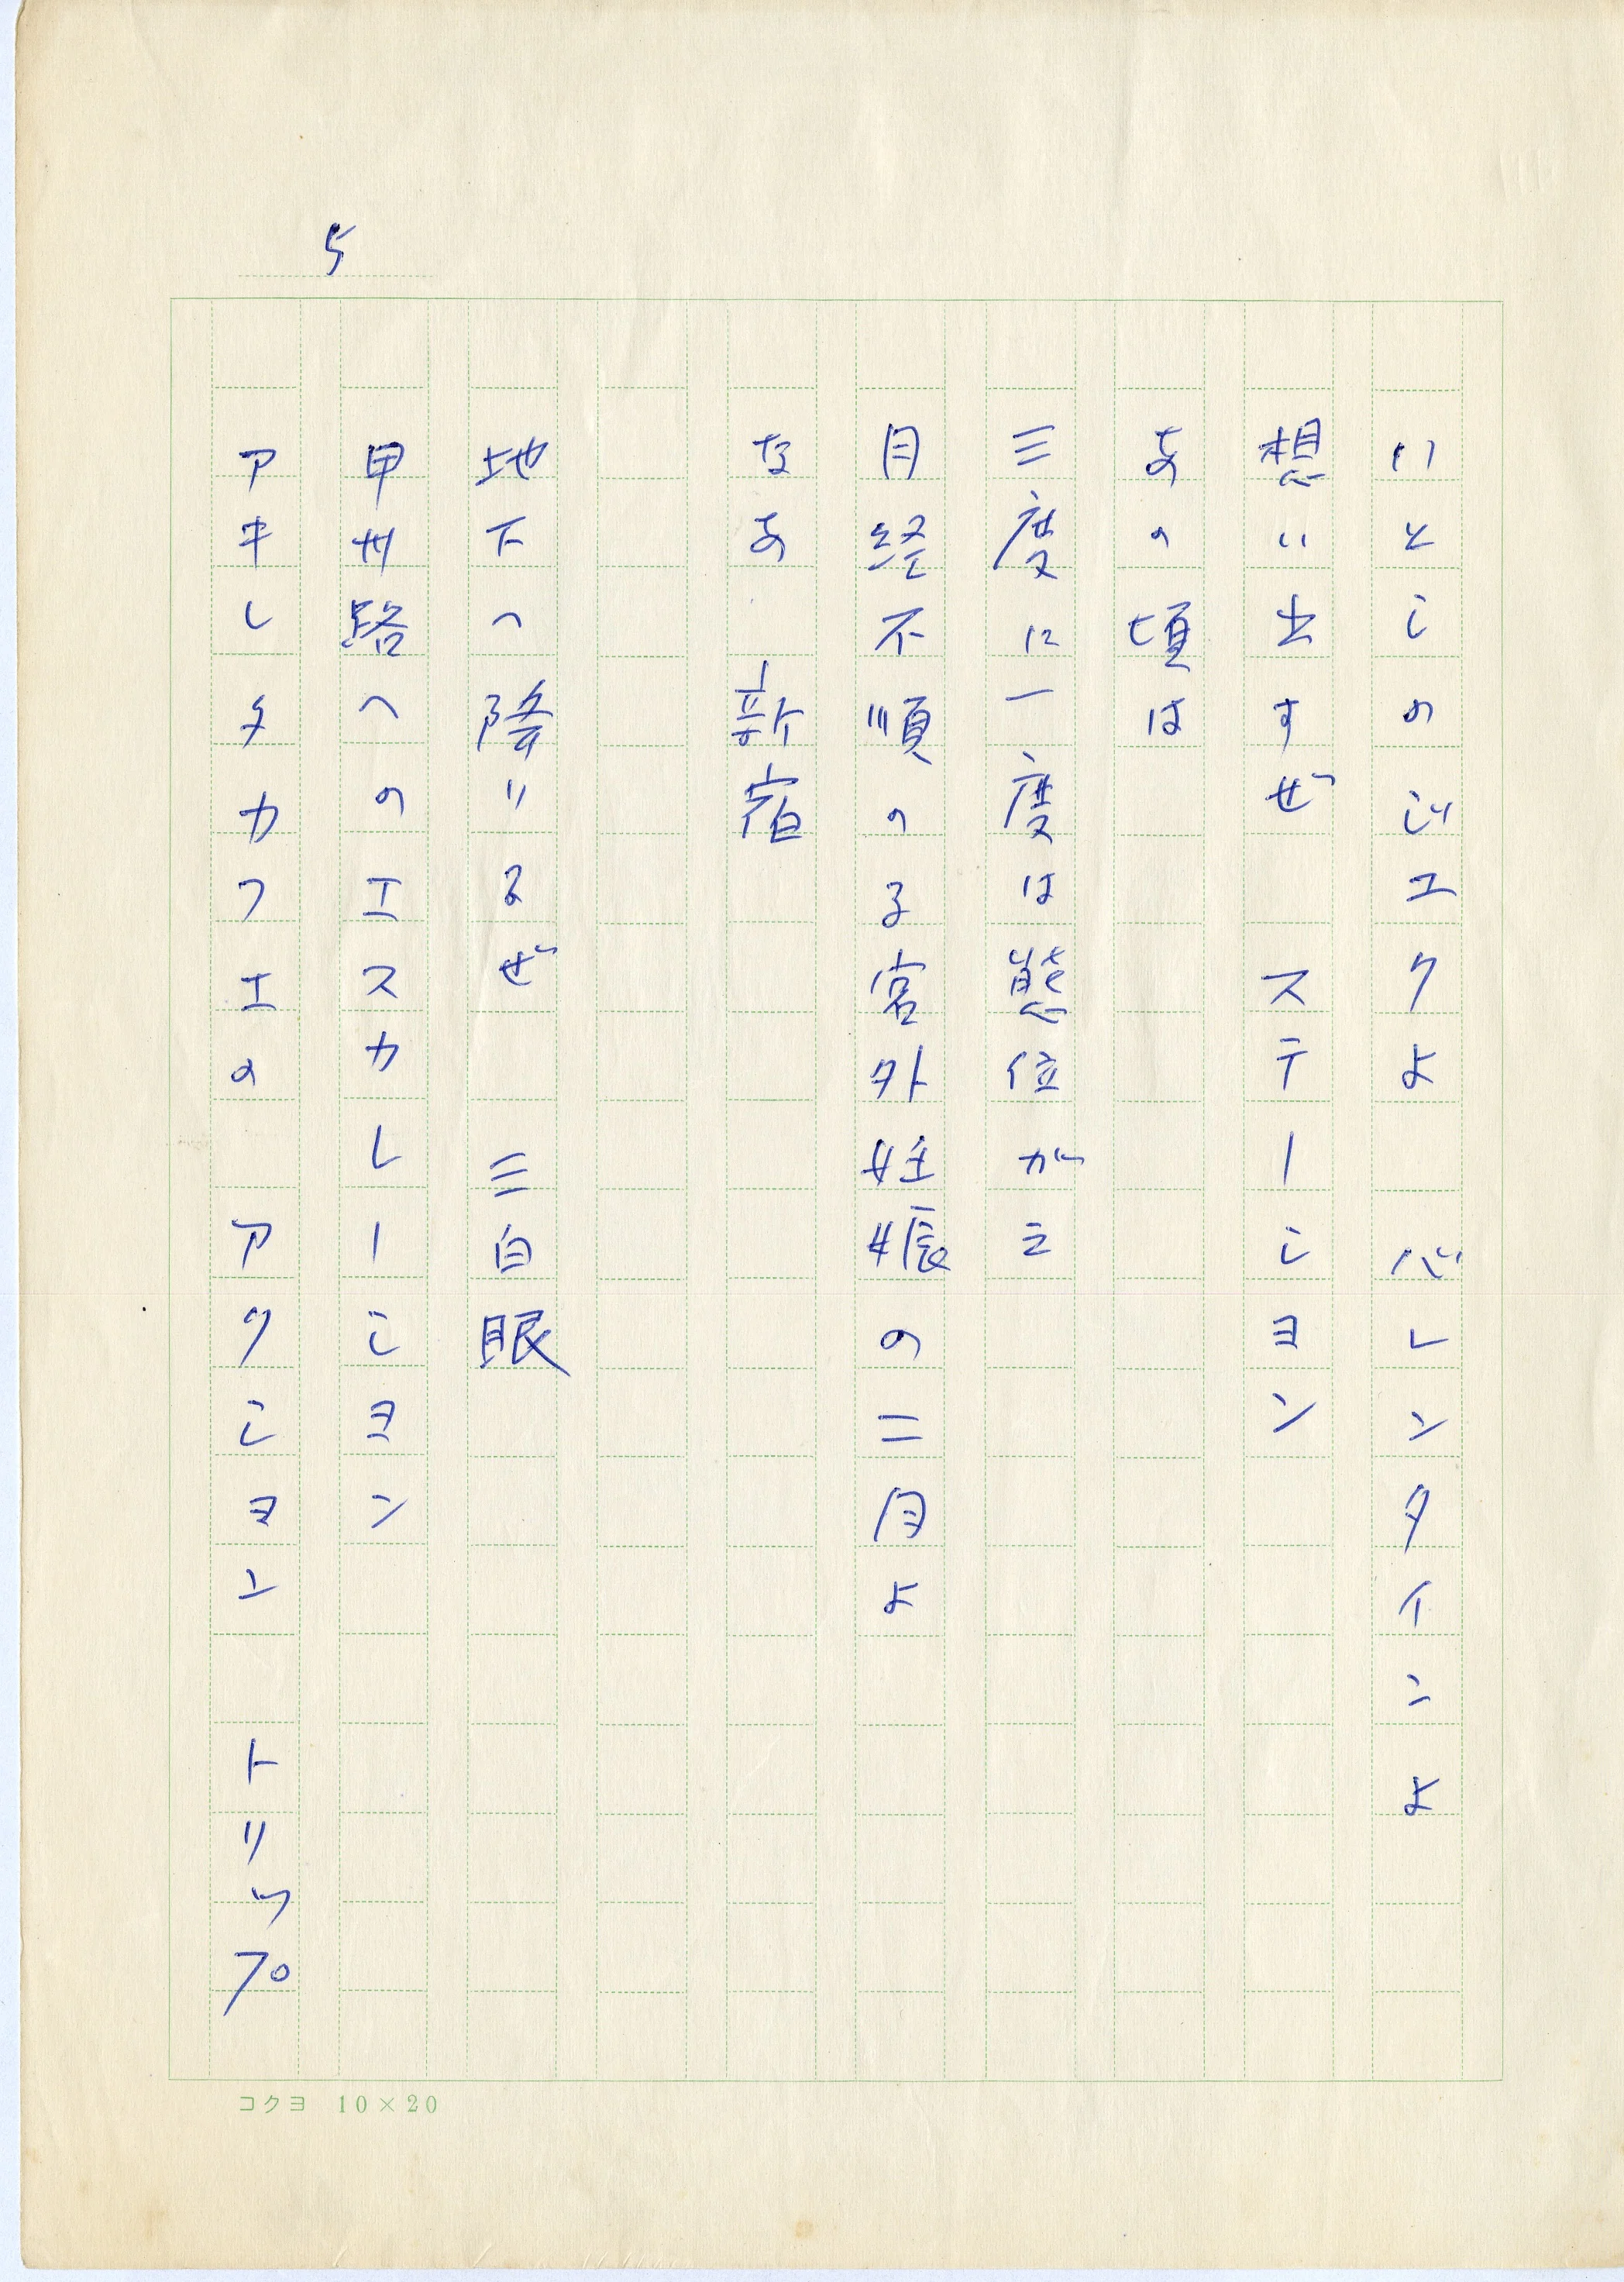 5
いとしのジエクよ　バレンタインよ
想い出すぜ　ステーション
あの頃は
三度に一度は態位がえ
月経不順の子宮外妊娠の二月よ
なあ　新宿
地下へ降りるぜ　三白眼
甲州路へのエスカレーション
アキレタカフエの　アクション　トリップ
コクヨ 10×20